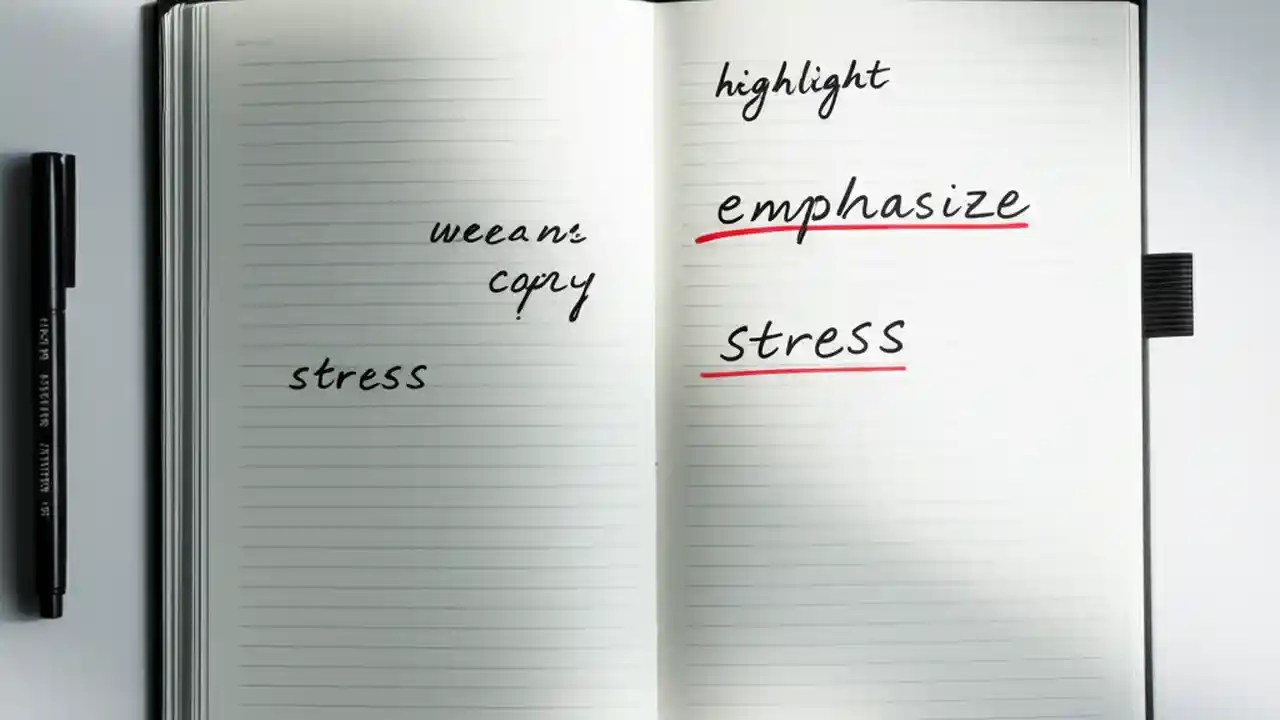 copy
stress
highlight
emphasize
stress